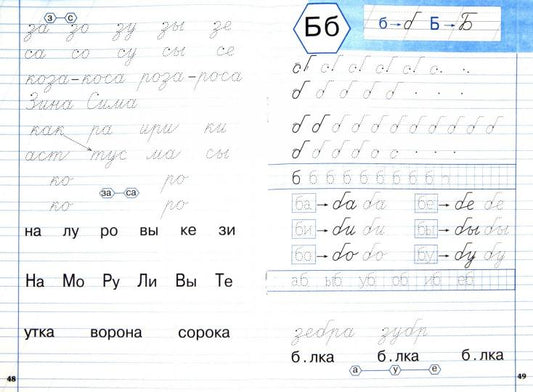 з с
за зо зу зы зе
са со су сы се
коза-коса роза-роса
Зина Сима
как ра ири ки
аст тус ма сы
ко ро
за са
ко ро
на лу ро вы ке зи
На Мо Ру Ли Вы Те
утка ворона сорока
48
Бб
б → б Б → Б
б б б б б б б б б
ба → ба ба бе → бе бе
би → би би бы → бы бы
бо → бо бо бу → бу бу
аб ыб уб об иб еб
зебра зубр
б.лка б.лка б.лка
а у е
49